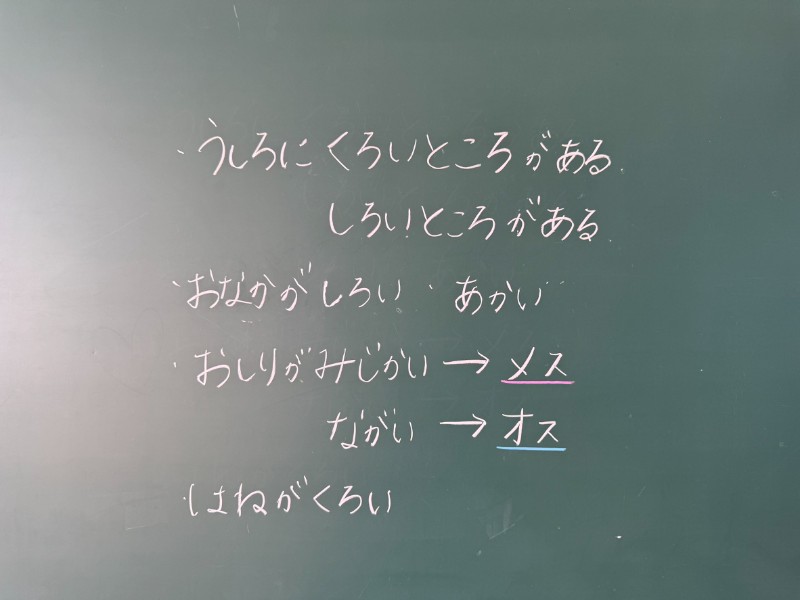 ・うしろにくろいところがある
しろいところがある
・おなかがしろい・あかい
・おしりがみじかい→メス
ながい→オス
・はねがくろい